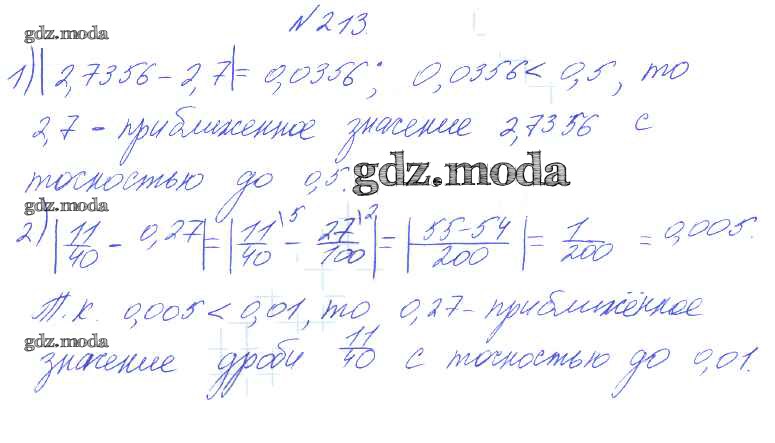 №213.
gdz.moda
1) |2,7356 - 2,7| = 0,0356; 0,0356 < 0,5, то
2,7 - приближенное значение 2,7356 с
точностью до 0,5.
gdz.moda
gdz.moda
2) |11/40 - 0,27| = |11/40 \5 - 27/100 \2| = |55-54/200| = 1/200 = 0,005.
Т.к. 0,005 < 0,01, то 0,27 - приближённое
gdz.moda
значение дроби 11/40 с точностью до 0,01.